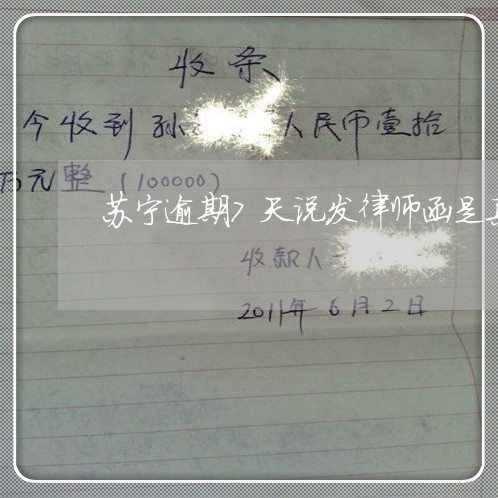 收条
今收到孙 人民币壹拾
万元整(100000)
苏宁逾期7天说发律师函是
收款人
2011年6月2日